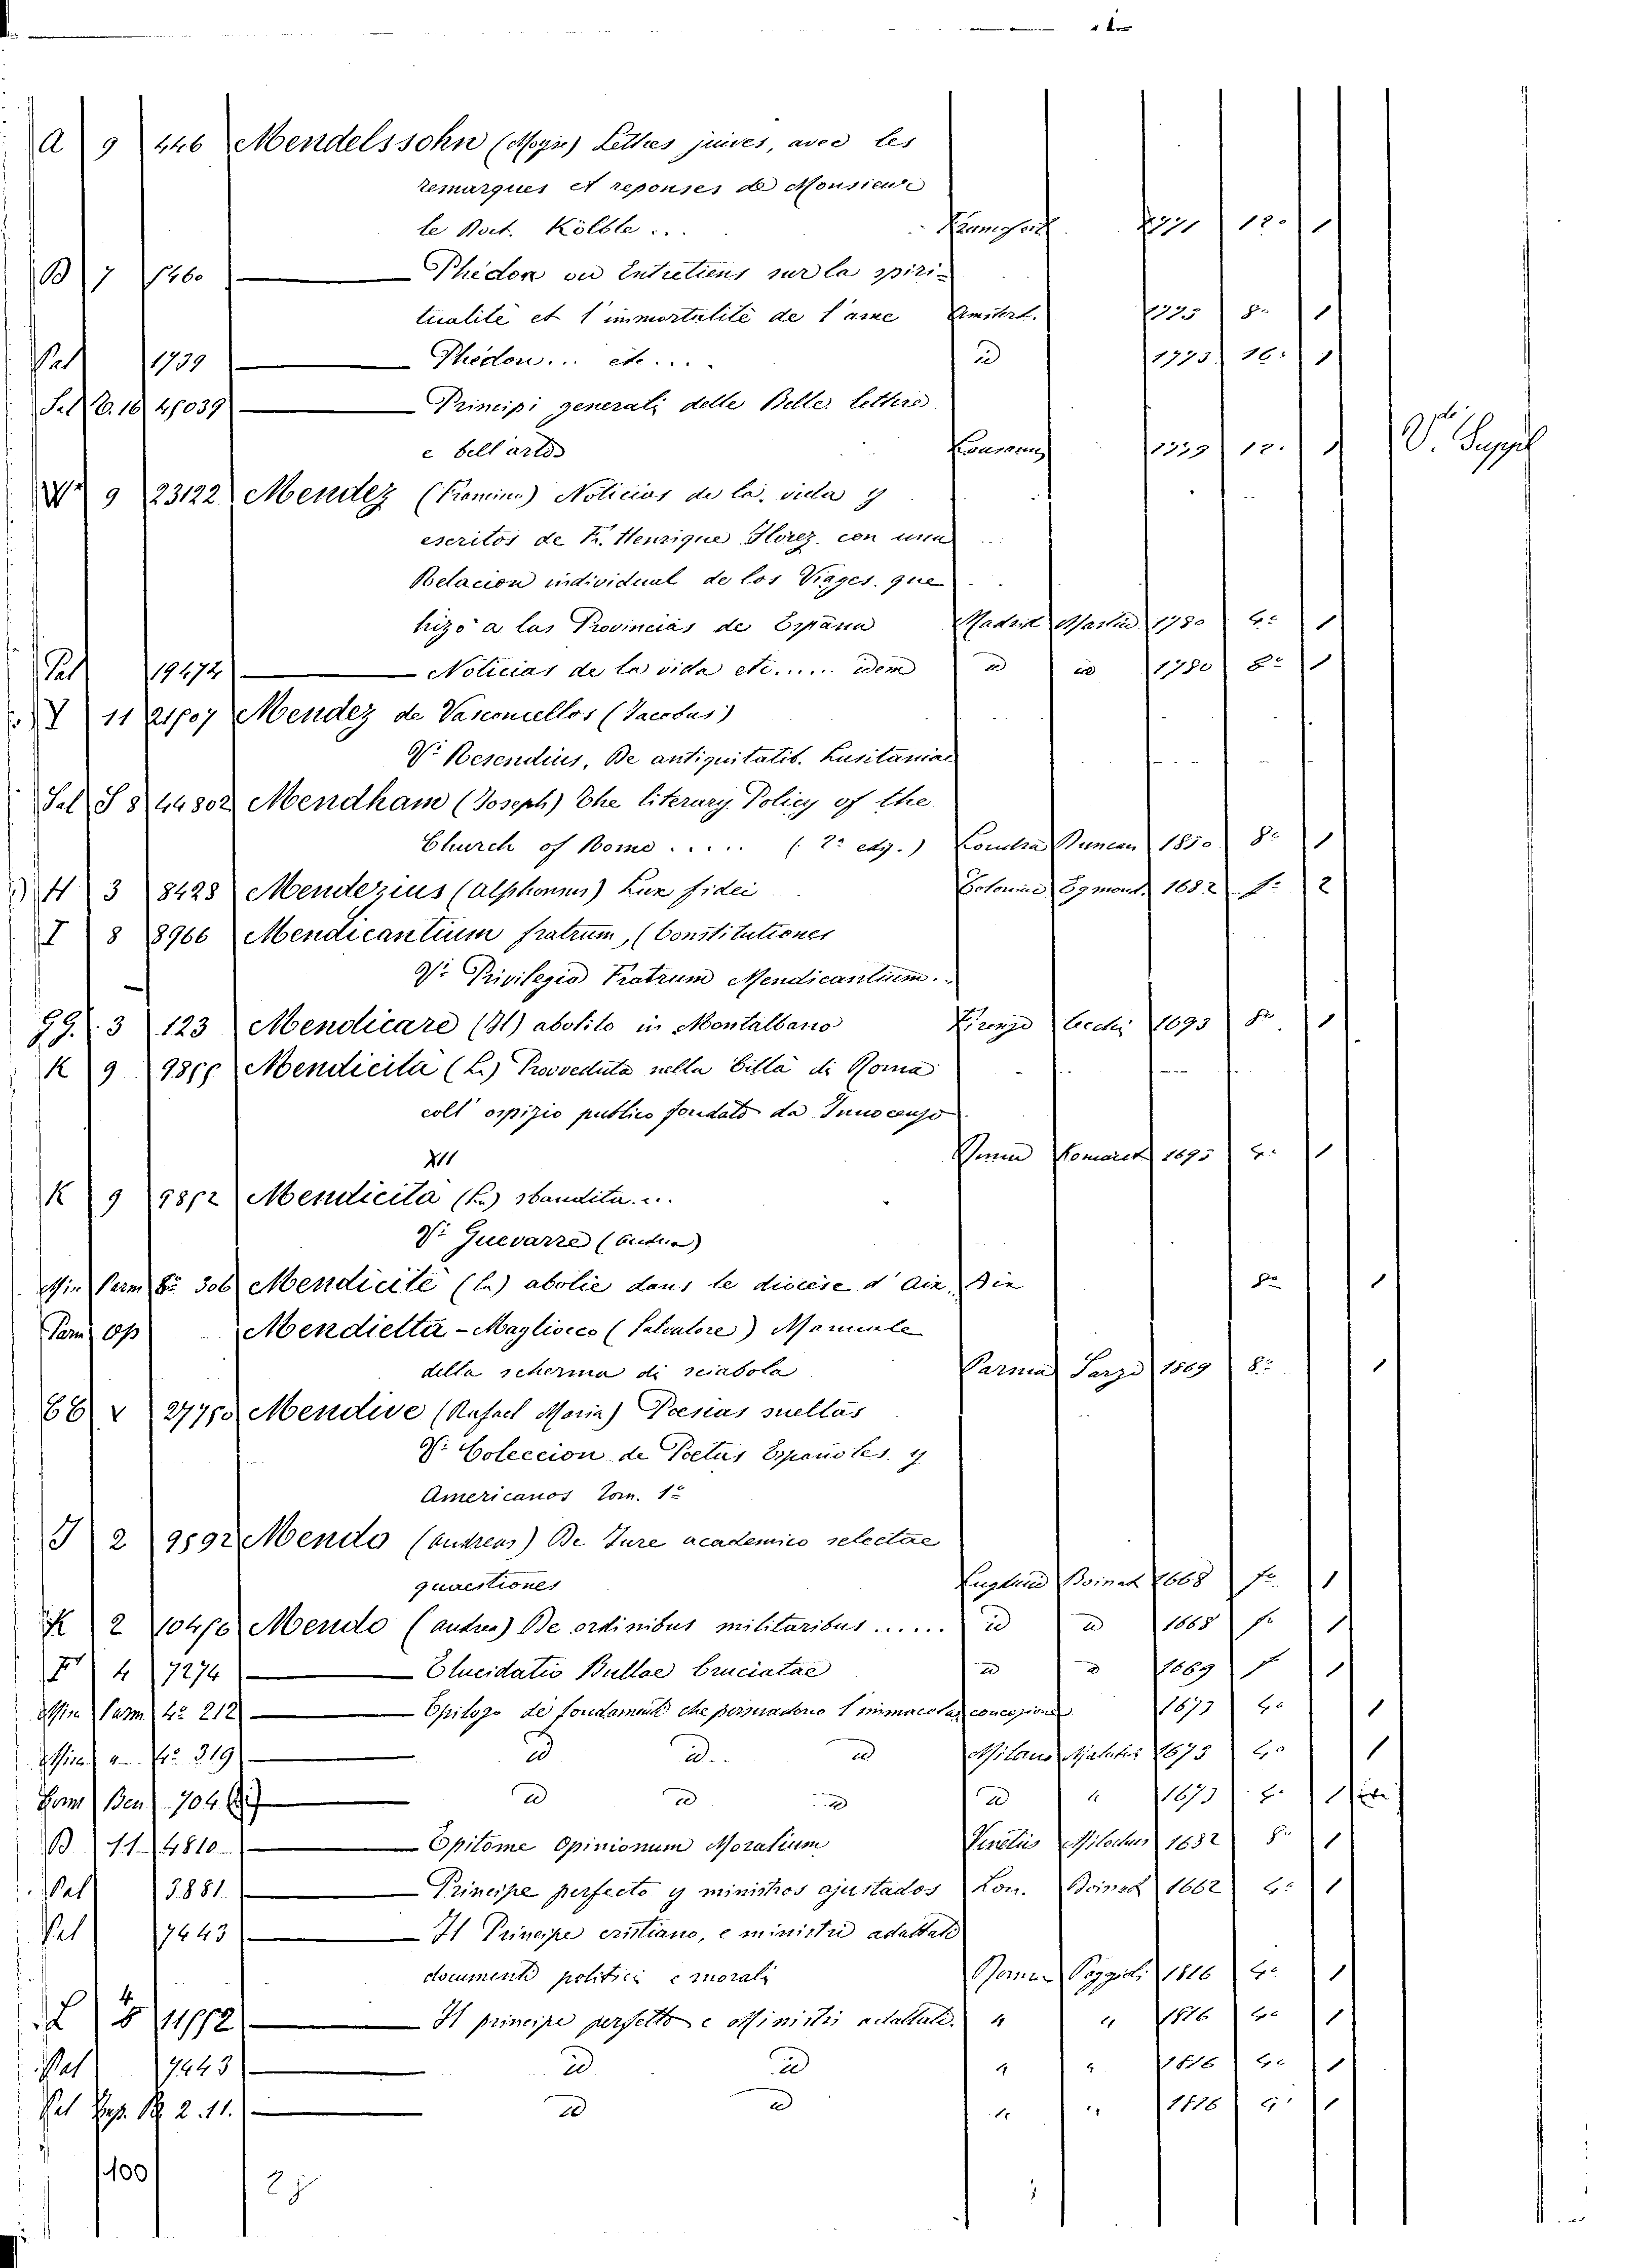 A 9 446 Mendelssohn (Moyse) Lettres juives, avec les
remarques et reponses de Monsieur
le Doct. Kölble ... 1771 12° 1
B 7 1460 — Phédon ou Entretiens sur la spiri-
tualité et l'immortalité de l'ame Amsterd. 1775 8° 1
Pal 1739 — Phédon... etc.... id 1775 16° 1
Sal B. 16 45039 — Principi generali delle Belle lettere
e bell'arti 12° 1 V. Suppl
9 23122 Mendez (Francisco) Noticias de la vida y
escritos de Fr. Henrique Florez, con una
Relacion individual de los Viages que
hizó a las Provincias de España Madrid Martin 1780 4° 1
Pal 19472 — Noticias de la vida etc...... idem id id 1780 8° 1
Y 11 21507 Mendez de Vasconcellos (Jacobus)
V. Resendius, De antiquitatib. Lusitaniae
Sal S 8 44802 Mendham (Joseph) The literary Policy of the
Church of Rome ..... (2ª ediz.) Londra Duncan 1850 8° 1
H 3 8428 Menderius (Alphonsus) Lux fidei Coloniae Egmond 1682 f° 2
I 8 8966 Mendicantium fratrum, (Constitutiones
V. Privilegia Fratrum Mendicantium..
GG. 3 123 Mendicare (Il) abolito in Montalbano Firenze Cecchi 1693 8° 1
K 9 Mendicità (La) Provveduta nella Città di Roma
coll' ospizio publico fondato da Innocenzo
XII Roma Komarek 1693 4° 1
K 9 9852 Mendicità (La) sbandita...
V. Guevarre (Andrea)
Min Parm 8° 306 Mendicité (la) abolie dans le diocèse d'Aix, Aix 8° 1
Parm Op Mendietta-Magliocco (Salvatore) Manuale
della scherma di sciabola Parma Sarzi 1869 8° 1
66 v 27750 Mendive (Rafael Maria) Poesias sueltas
V. Coleccion de Poetas Españoles y
Americanos Tom. 1°
J 2 9592 Mendo (Andreas) De Jure academico selectae
quaestiones Lugduni Boissat 1668 f° 1
K 2 10450 Mendo (Andrea) De ordinibus militaribus ...... id id 1668 f° 1
F 4 7274 — Elucidatio Bullae Cruciatae id id 1669 f° 1
Min Parm 4° 212 — Epilogo de fondamenti che persuadono l'immacolata concezione 1673 4° 1
Min " 4° 319 — id id id Milano Malatesta 1673 4° 1
Com Ben 704 — id id id id " 1673 4° 1
B 11 4810 — Epitome Opinionum Moralium Venetiis Milochus 1682 8° 1
Pal 3881 — Principe perfecto y ministros ajustados Lon. Boissat 1662 4° 1
Pal 7443 — Il Principe cristiano, e ministri adattati
documenti politici e morali Roma Poggioli 1816 4° 1
L 4 8 — Il principe perfetto e Ministri adattati " " 1816 4° 1
Pal 7443 — id id " " 1816 4° 1
Pal 2. 11. — id id " " 1816 4° 1
100